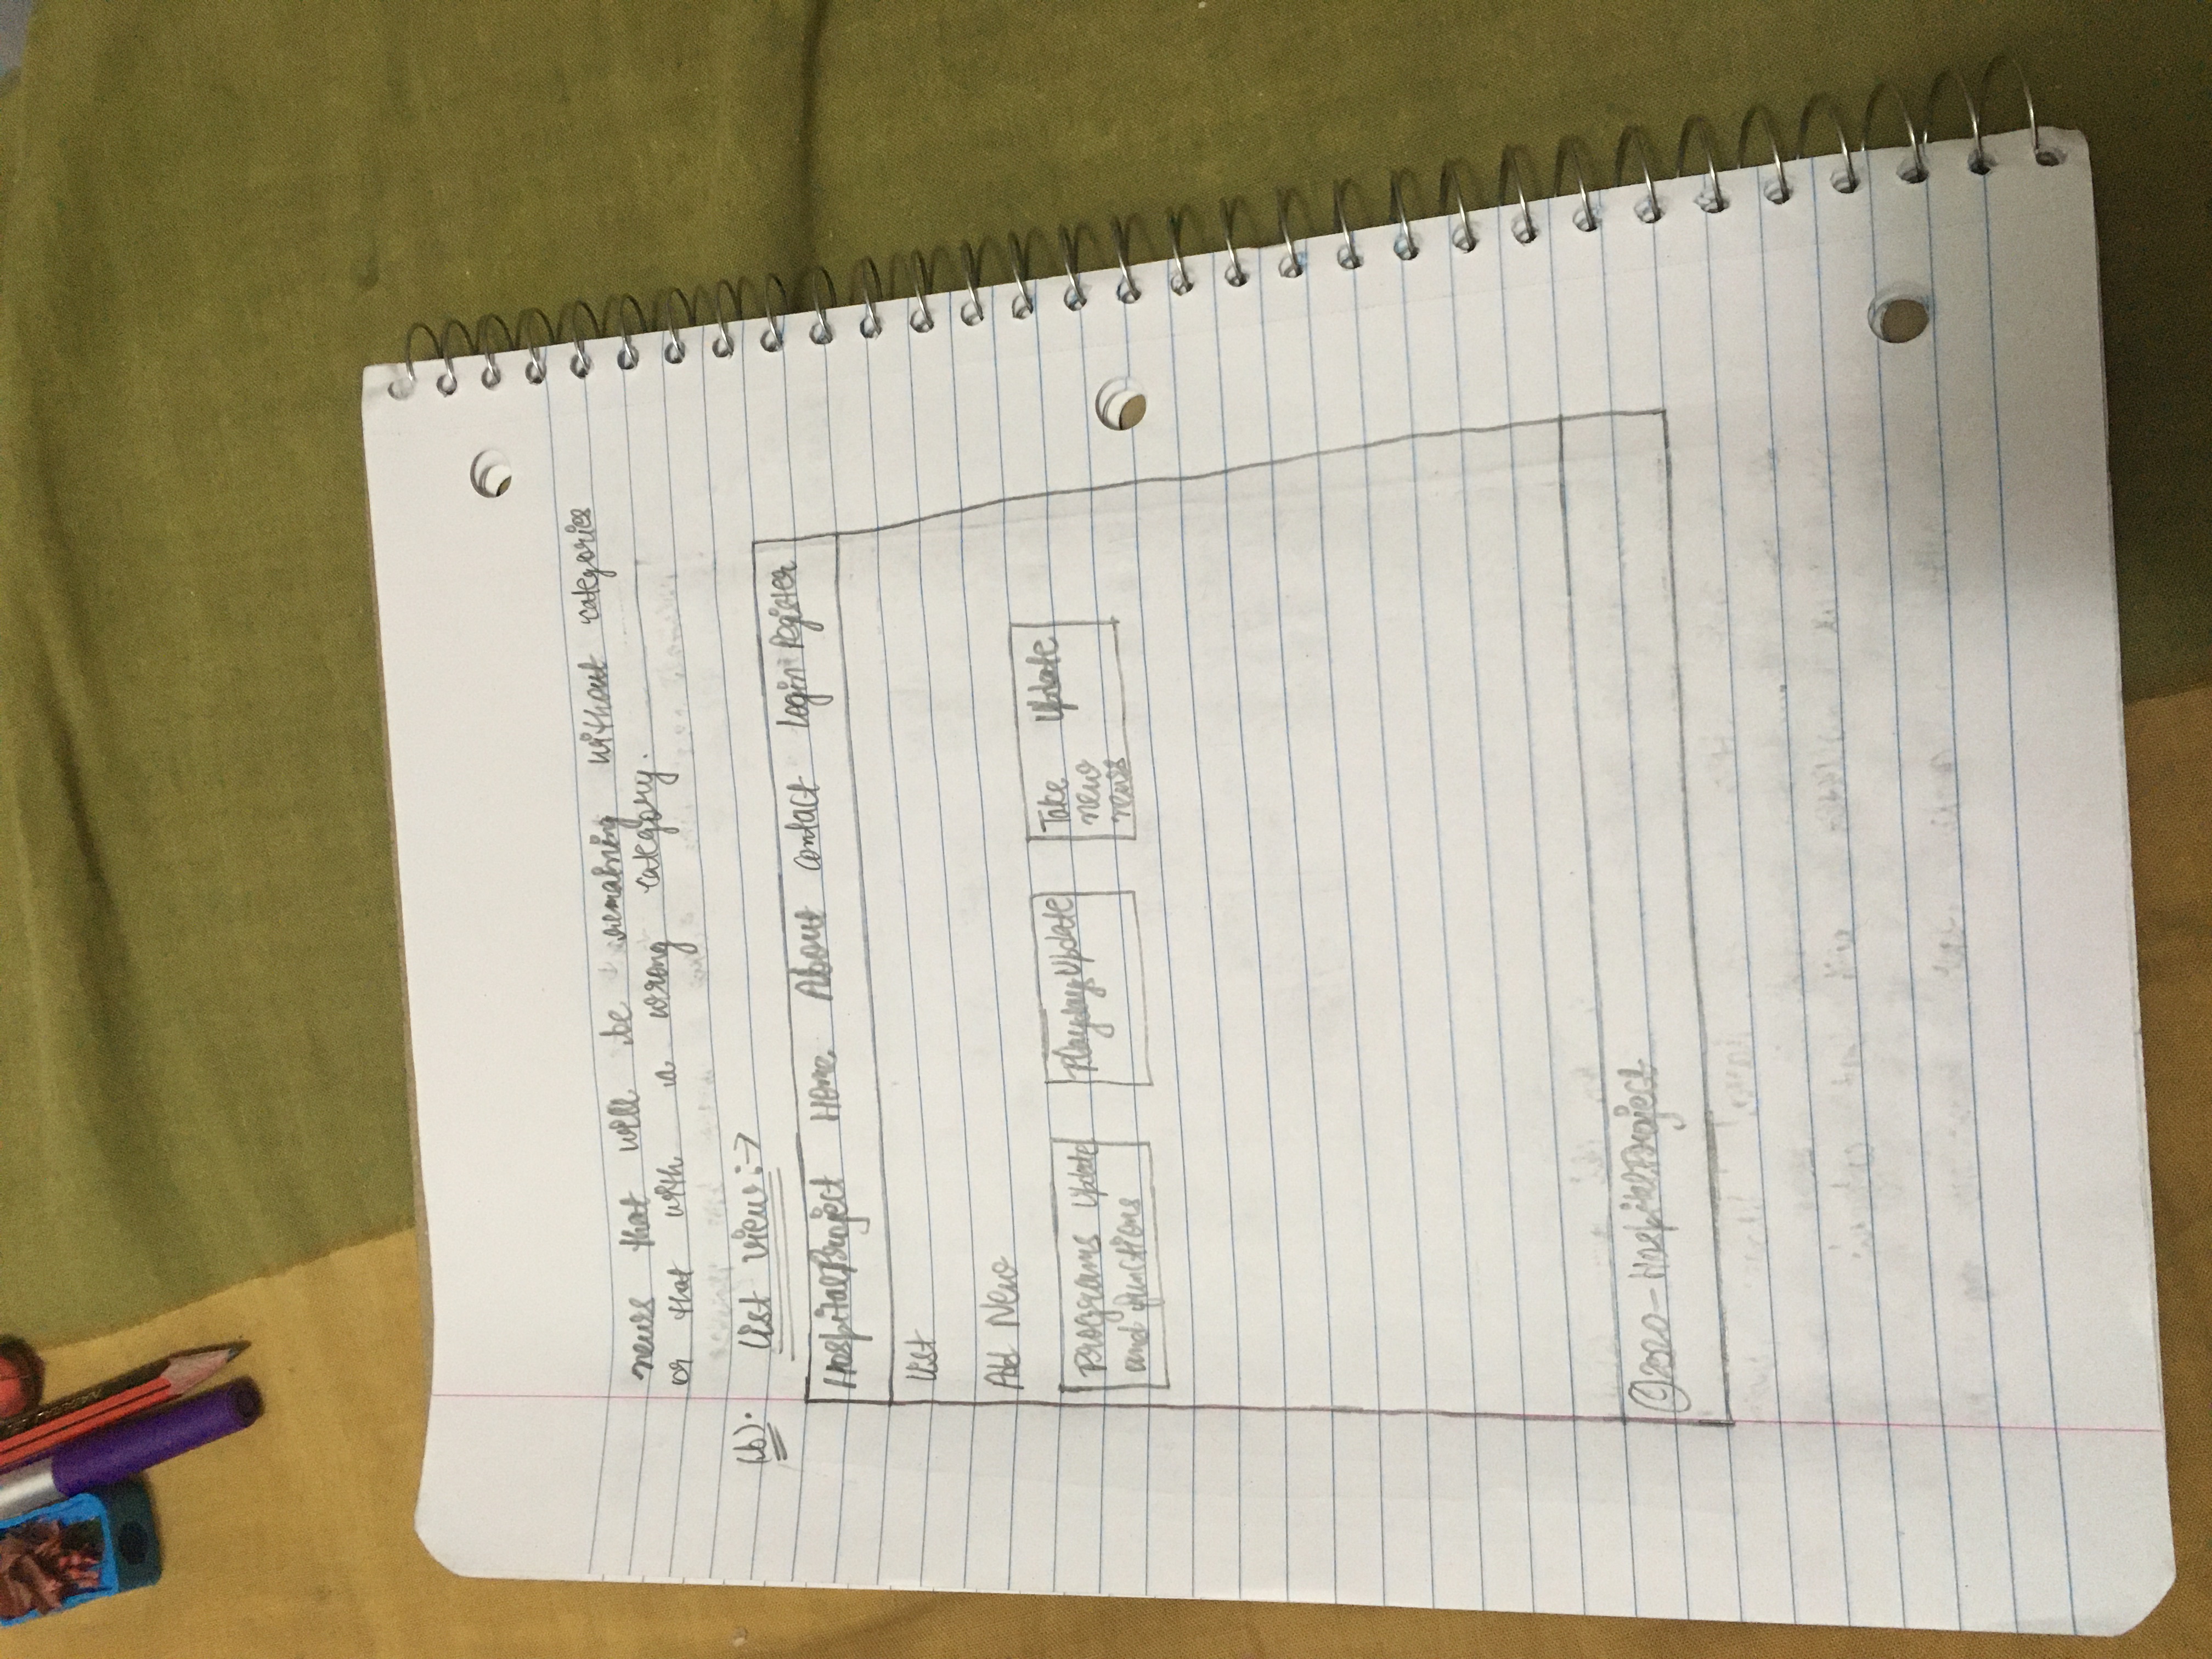 news that will be remaining without categories
or that with a wrong category.
(b). List view:→
HospitalProject Home About Contact Login Register
List
Add New
Programs Update
and functions
Playdays Update
Take Update
new
news
©2020-HospitalProject